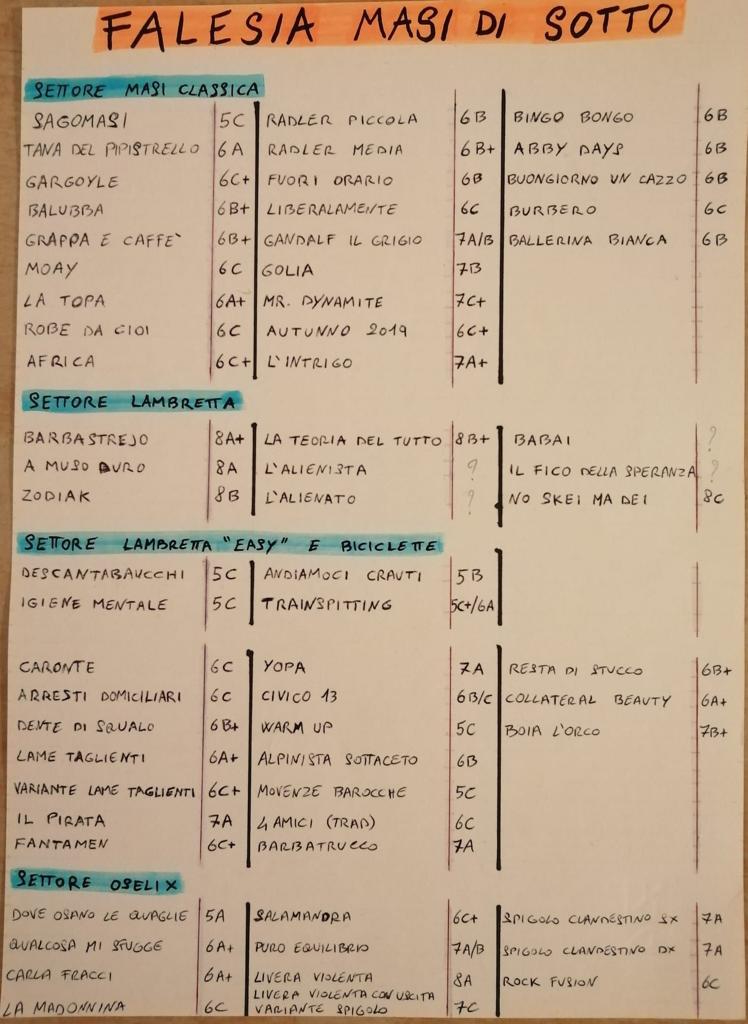 FALESIA MASI DI SOTTO
SETTORE MASI CLASSICA
SAGOMASI 5C RADLER PICCOLA 6B BINGO BONGO 6B
TANA DEL PIPISTRELLO 6A RADLER MEDIA 6B+ ABBY DAYS 6B
GARGOYLE 6C+ FUORI ORARIO 6B BUONGIORNO UN CAZZO 6B
BALUBBA 6B+ LIBERALAMENTE 6C BURBERO 6C
GRAPPA E CAFFE' 6B+ GANDALF IL GRIGIO 7A/B BALLERINA BIANCA 6B
MOAY 6C GOLIA 7B
LA TOPA 6A+ MR. DYNAMITE 7C+
ROBE DA CIOI 6C AUTUNNO 2019 6C+
AFRICA 6C+ L'INTRIGO 7A+
SETTORE LAMBRETTA
BARBASTREJO 8A+ LA TEORIA DEL TUTTO 8B+ BABAI ?
A MUSO DURO 8A L'ALIENISTA ? IL FICO DELLA SPERANZA ?
ZODIAK 8B L'ALIENATO ? NO SKEI MA DEI 8C
SETTORE LAMBRETTA "EASY" E BICICLETTE
DESCANTABAUCCHI 5C ANDIAMOCI CRAUTI 5B
IGIENE MENTALE 5C TRAINSPITTING 5C+/6A
CARONTE 6C YOPA 7A RESTA DI STUCCO 6B+
ARRESTI DOMICILIARI 6C CIVICO 13 6B/C COLLATERAL BEAUTY 6A+
DENTE DI SQUALO 6B+ WARM UP 5C BOIA L'ORCO 7B+
LAME TAGLIENTI 6A+ ALPINISTA SOTTACETO 6B
VARIANTE LAME TAGLIENTI 6C+ MOVENZE BAROCCHE 5C
IL PIRATA 7A 4 AMICI (TRAD) 6C
FANTAMEN 6C+ BARBATRUCCO 7A
SETTORE OSELIX
DOVE OSANO LE QUAGLIE 5A SALAMANDRA 6C+ SPIGOLO CLANDESTINO SX 7A
QUALCOSA MI SFUGGE 6A+ PURO EQUILIBRIO 7A/B SPIGOLO CLANDESTINO DX 7A
CARLA FRACCI 6A+ LIVERA VIOLENTA 8A ROCK FUSION 6C
LIVERA VIOLENTA CON USCITA
LA MADONNINA 6C VARIANTE SPIGOLO 7C